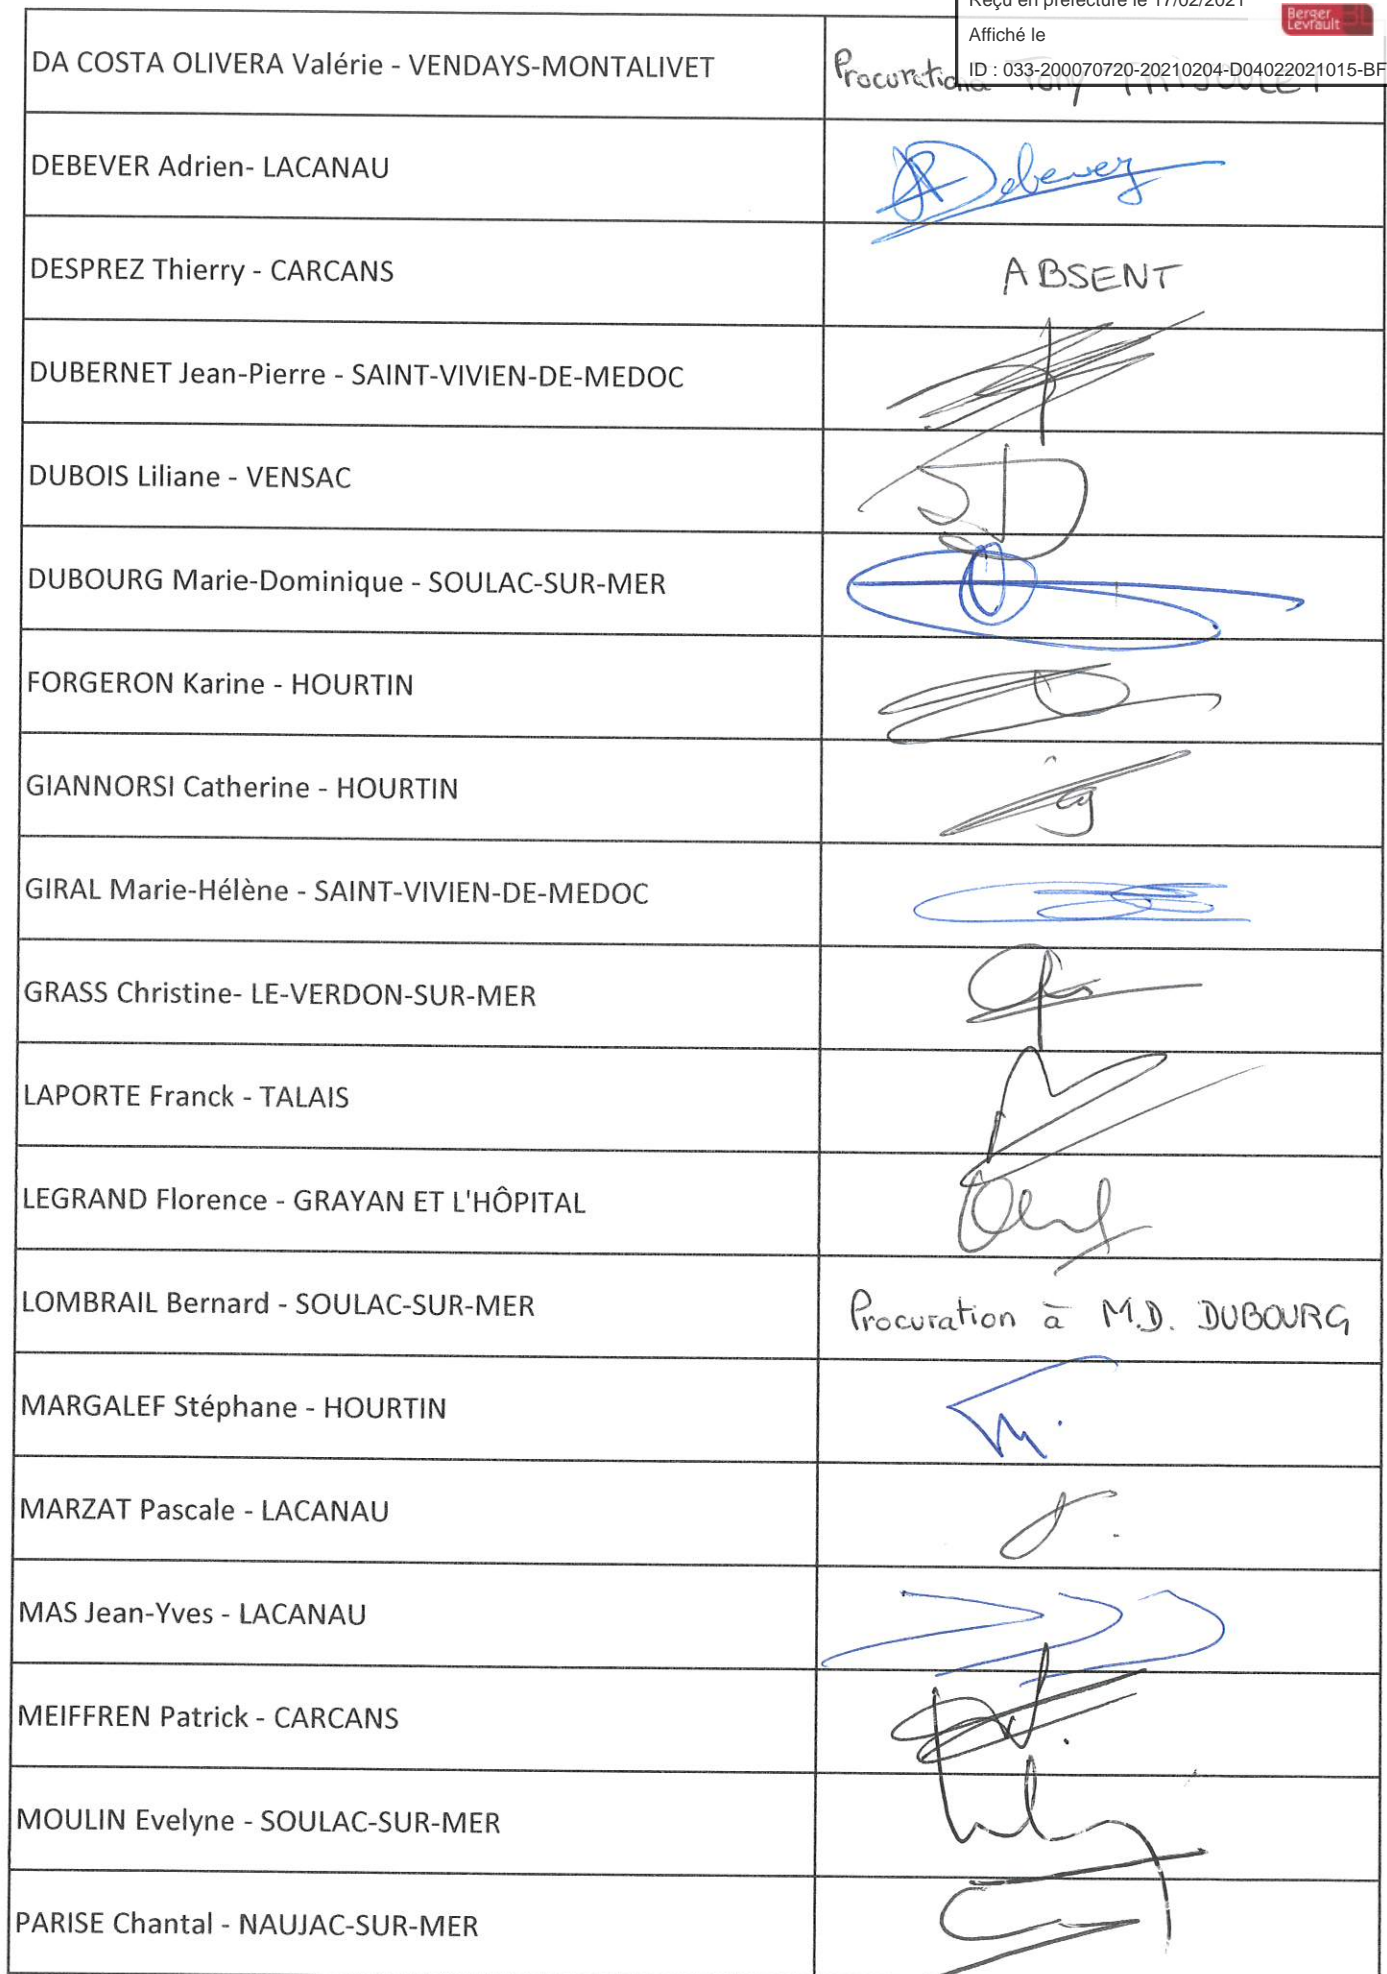 Reçu en préfecture le 17/02/2021
Berger
Levrault
Affiché le
ID : 033-200070720-20210204-D04022021015-BF
DA COSTA OLIVERA Valérie - VENDAYS-MONTALIVET
Procuration à Tony
DEBEVER Adrien- LACANAU
Debever
DESPREZ Thierry - CARCANS
ABSENT
DUBERNET Jean-Pierre - SAINT-VIVIEN-DE-MEDOC
DUBOIS Liliane - VENSAC
DUBOURG Marie-Dominique - SOULAC-SUR-MER
FORGERON Karine - HOURTIN
GIANNORSI Catherine - HOURTIN
GIRAL Marie-Hélène - SAINT-VIVIEN-DE-MEDOC
GRASS Christine- LE-VERDON-SUR-MER
LAPORTE Franck - TALAIS
LEGRAND Florence - GRAYAN ET L'HÔPITAL
LOMBRAIL Bernard - SOULAC-SUR-MER
Procuration à M.D. DUBOURG
MARGALEF Stéphane - HOURTIN
MARZAT Pascale - LACANAU
MAS Jean-Yves - LACANAU
MEIFFREN Patrick - CARCANS
MOULIN Evelyne - SOULAC-SUR-MER
PARISE Chantal - NAUJAC-SUR-MER